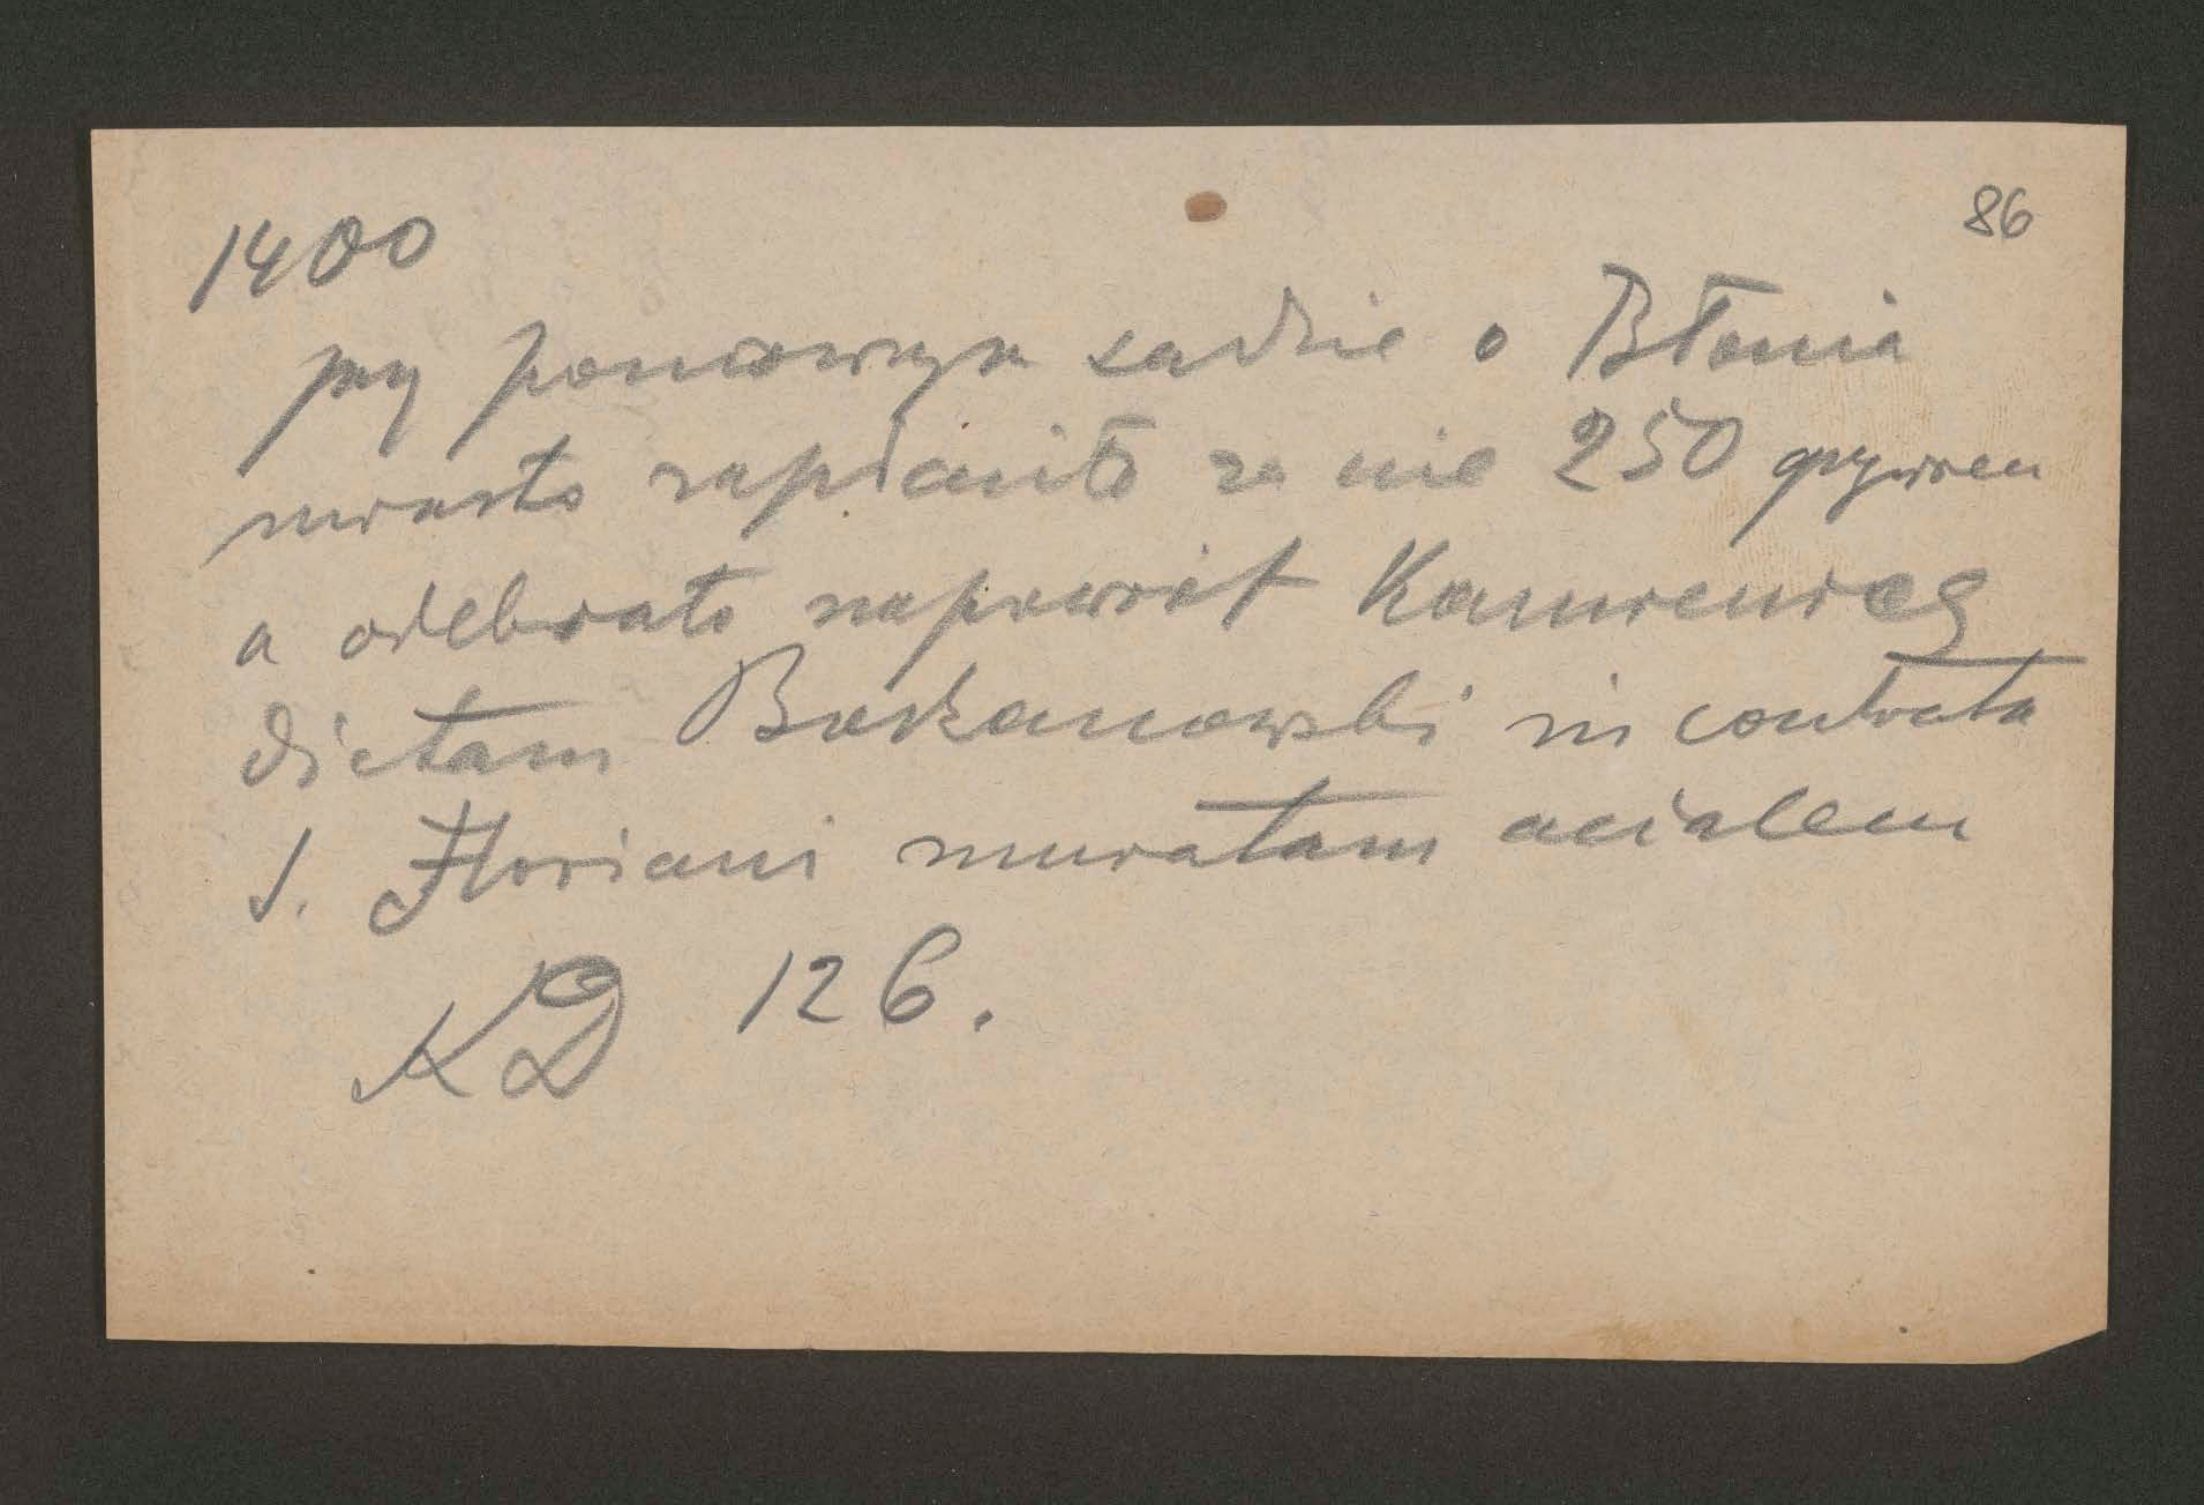 86
1400
przy ponownym sądzie o Błonia
miasto zapłaciło za nie 250 grzywien
a odebrało napowrót Kamienicę
dictam Borkanowski in contrata
S. Floriani muratam acialem
KD 126.